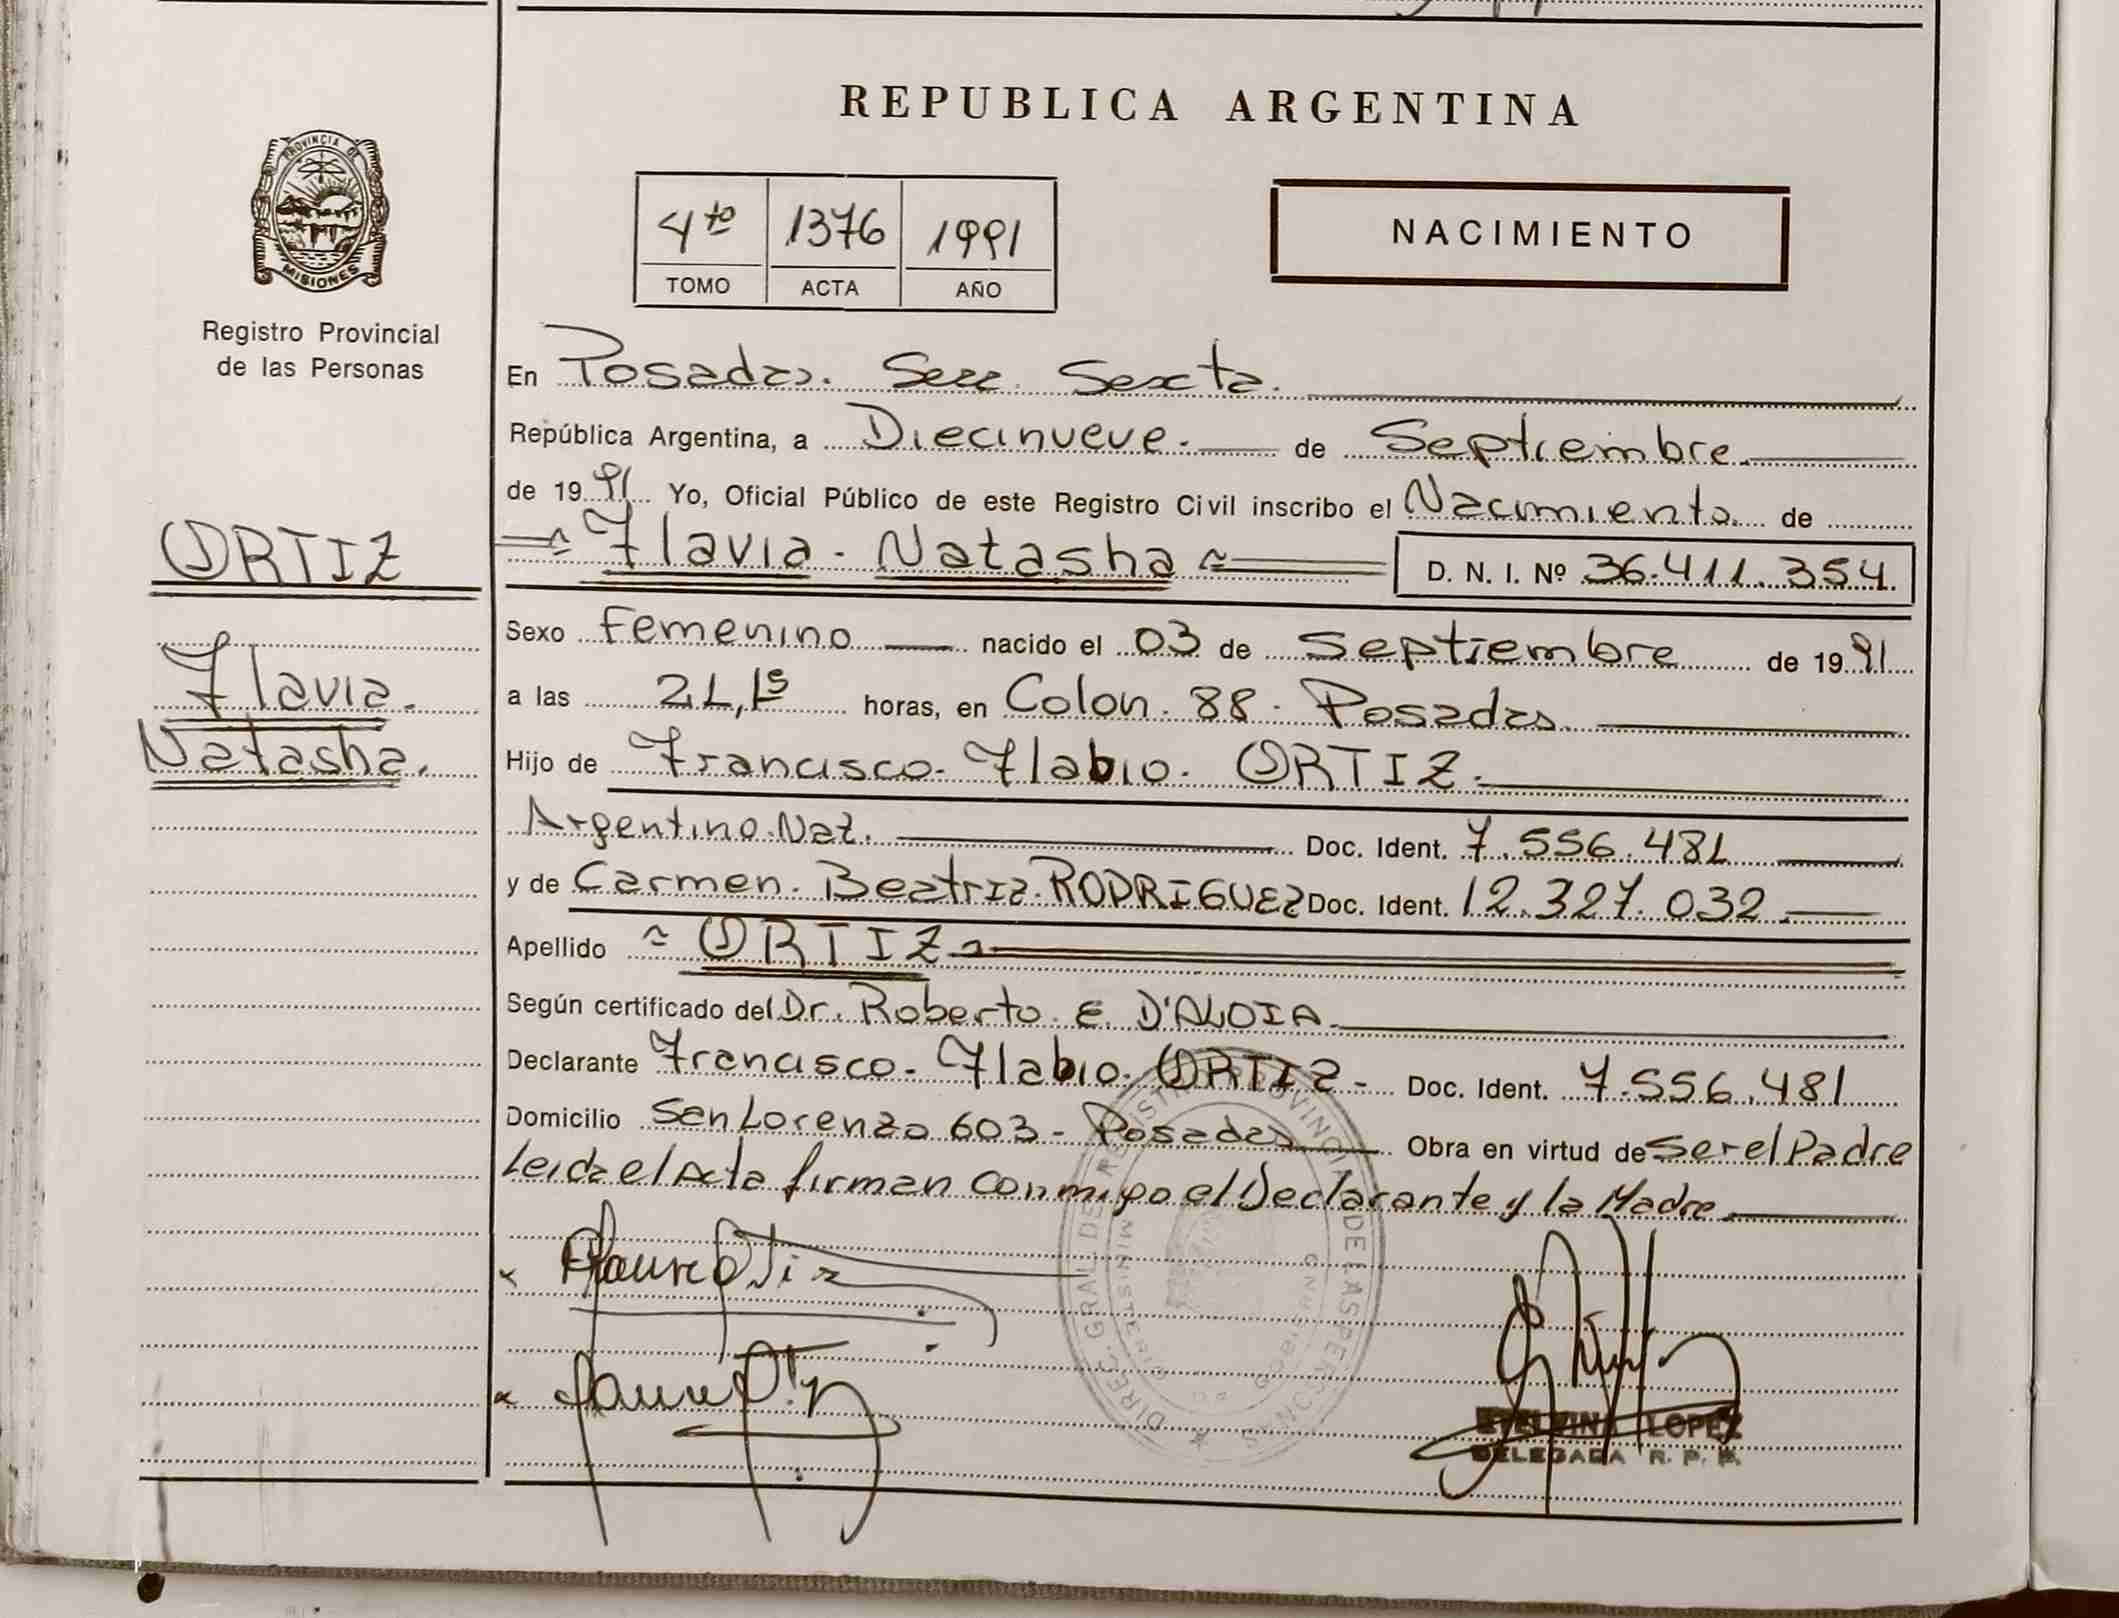 REPUBLICA ARGENTINA
PROVINCIA DE
MISIONES
Registro Provincial
de las Personas
4to 1376 1991
TOMO ACTA AÑO
NACIMIENTO
En Posadas. Secc. Sexta.
República Argentina, a Diecinueve. de Septiembre
de 1991 Yo, Oficial Público de este Registro Civil inscribo el Nacimiento de
ORTIZ
Flavia - Natasha D. N. I. Nº 36.411.354
Flavia.
Natasha.
Sexo Femenino nacido el 03 de Septiembre de 1991
a las horas, en Colon. 88. Posadas.
Hijo de Francisco. Flabio. ORTIZ.
Argentino. Nat. Doc. Ident. 7.556.481
y de Carmen. Beatriz. RODRIGUEZ Doc. Ident. 12.327.032
Apellido ORTIZ
Según certificado del Dr. Roberto. E. D'ALOIA
Declarante Francisco - Flabio. ORTIZ - Doc. Ident. 7.556.481
Domicilio San Lorenzo 603 - Posadas Obra en virtud de ser el Padre
Leida el Acta firman conmigo el Declarante y la Madre
LOPEZ
DELEGADA R. P. P.